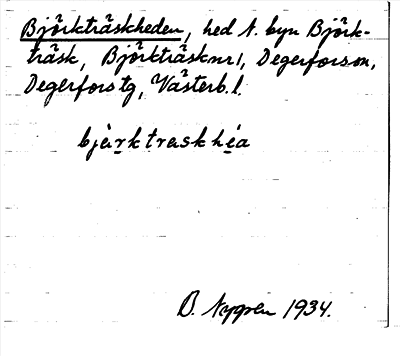 Björkträskheden, hed N. byn Björk-
träsk, Björkträsk nr 1, Degerfors sn,
Degerfors tg, Västerb. l.
bjärktraskhéa
B. Nygren 1934.